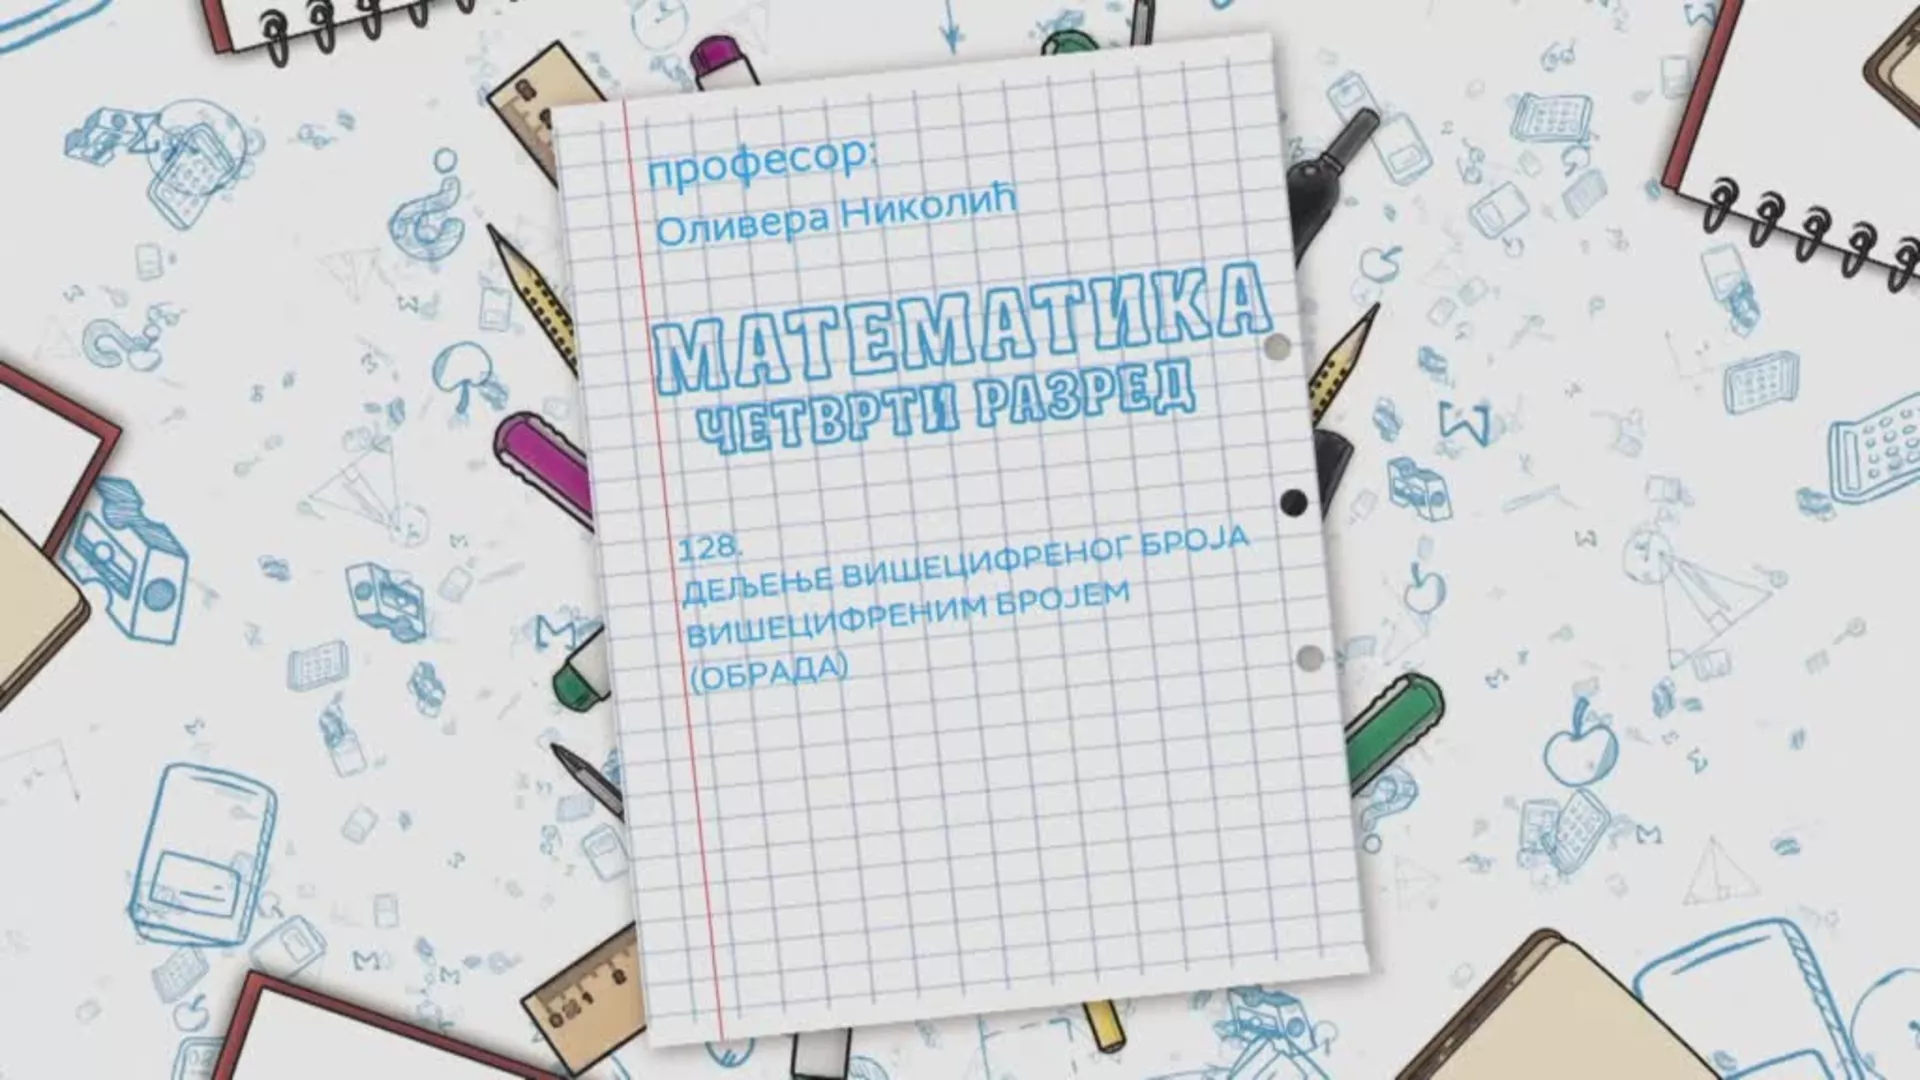 професор:
Оливера Николић
МАТЕМАТИКА
ЧЕТВРТИ РАЗРЕД
128.
ДЕЉЕЊЕ ВИШЕЦИФРЕНОГ БРОЈА
ВИШЕЦИФРЕНИМ БРОЈЕМ
(ОБРАДА)